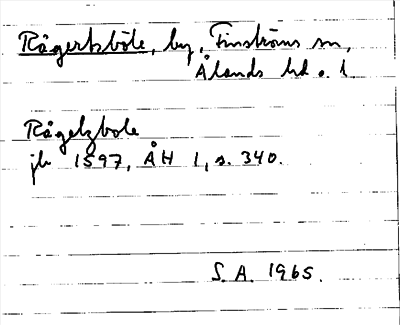 Rågertsböle, by, Finströms sn,
Ålands hd o. l.
Rågelzbole
jb 1597, ÅH 1, s. 340.
S. A. 1965.